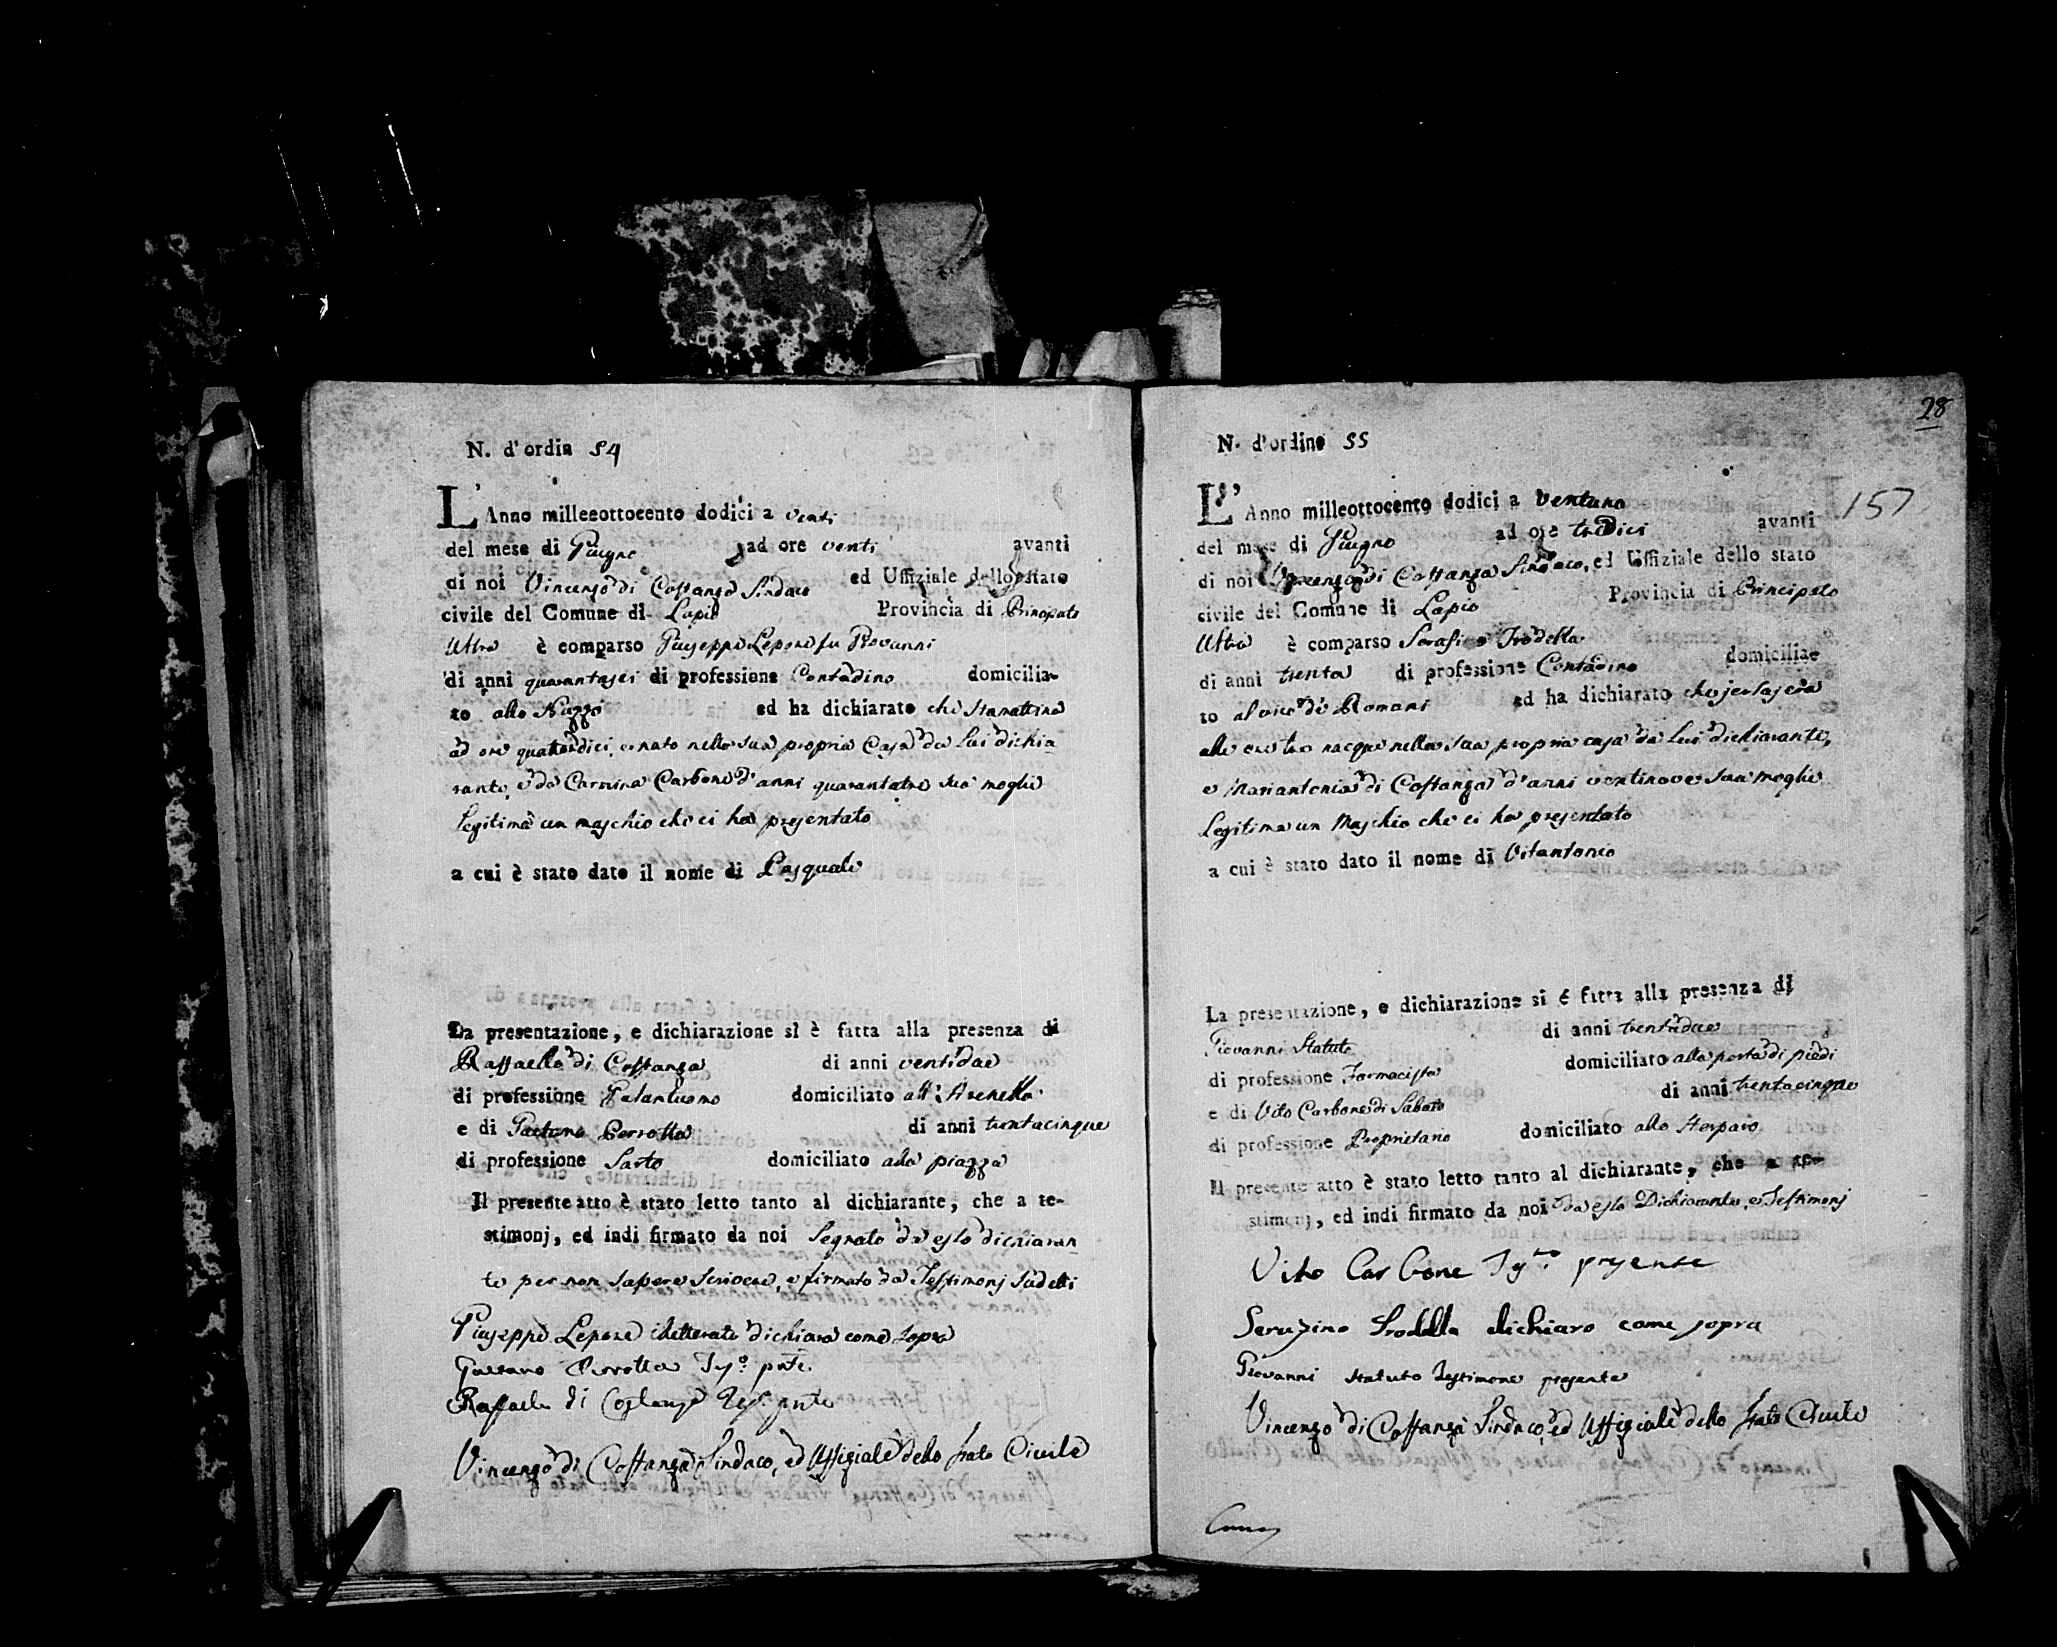 N. d'ordin 54
L'Anno milleeottocento dodici a venti
del mese di Giugno ad ore venti avanti
di noi Vincenzo di Costanzo Sindaco ed Uffiziale dello stato
civile del Comune di Lapio Provincia di Principato
Ultra è comparso Giuseppe Lepore fu Giovanni
di anni quarantasei di professione Contadino domicilia-
to allo ed ha dichiarato che stamattina
ad ore quattordici, è nato nella sua propria Casa da Lui dichia
rante, e da Carmina Carbone d'anni quarantatre sua moglie
legitima un maschio che ci ha presentato
a cui è stato dato il nome di Pasquale
La presentazione, e dichiarazione si è fatta alla presenza di
Raffaello di Costanzo di anni ventidue
di professione Galantuomo domiciliato all'Arenella
e di Gaetano Perrotta di anni trentacinque
di professione Sarto domiciliato alla piazza
Il presente atto è stato letto tanto al dichiarante, che a te-
stimonj, ed indi firmato da noi Segnato da esso dichiaran
te per non sapere scrivere, e firmato da Testimonj sudetti
Giuseppe Lepore illetterato dichiara come sopra
Gaetano Perrotta
Raffaele di Costanzo
Vincenzo di Costanzo Sindaco, ed Uffiziale dello Stato Civile
28
157
N. d'ordine 55
L'Anno milleottocento dodici a ventuno
del mese di Giugno ad ore tredici avanti
di noi Vincenzo di Costanzo Sindaco, ed Uffiziale dello stato
civile del Comune di Lapio Provincia di Principato
Ultra è comparso Serafino Trodella
di anni trenta di professione Contadino domicilia-
to al vico de Romani ed ha dichiarato che jersera
alle ore tre nacque nella sua propria casa da Lui dichiarante,
e Mariantonia di Costanzo d'anni ventinove sua moglie
Legitima un Maschio che ci ha presentato
a cui è stato dato il nome di Vitantonio
La presentazione, e dichiarazione si é fatta alla presenza di
Giovanni Statuto di anni trentadue
di professione Farmacista domiciliato alla porta di piedi
e di Vito Carbone di Sabato di anni trentacinque
di professione Proprietario domiciliato allo Sterparo
Il presente atto è stato letto tanto al dichiarante, che a te-
stimonj, ed indi firmato da noi da esso Dichiarante, e Testimonj
Vito Carbone presente
Serafino Trodella dichiaro come sopra
Giovanni Statuto testimone presente
Vincenzo di Costanzo Sindaco, ed Uffiziale dello Stato Civile